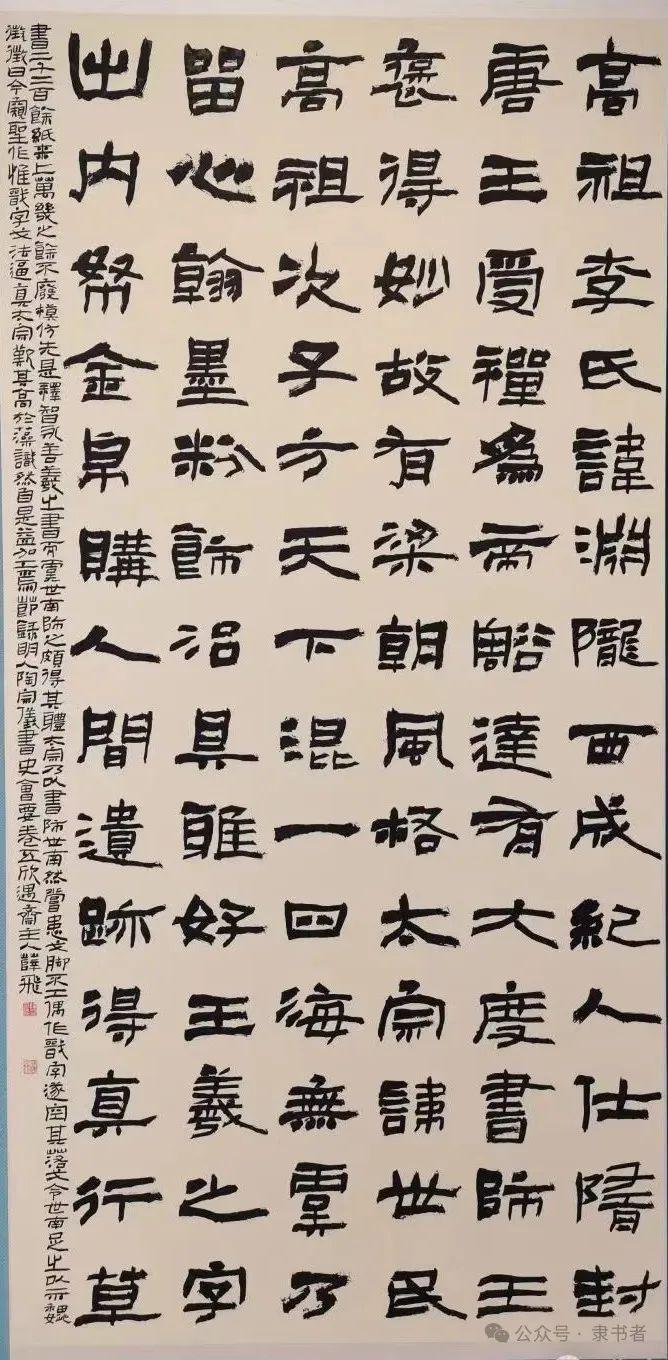 高祖李氏諱淵隴西成紀人仕隋封
唐王受禪為帝豁達有大度書師王
褒得妙故有梁朝風格太宗諱世民
高祖次子方天下混一四海無虞乃
留心翰墨粉飾治具雅好王羲之字
出内帑金帛購人間遺跡得真行草
書二千二百餘紙來上萬幾之餘不廢模仿先是釋智永善羲之書而虞世南師之頗得其體太宗乃以書師世南然嘗患戈脚不工偶作戩字遂空其落戈令世南足之以示魏
徵徵曰今窺聖作惟戩字戈法逼真太宗歎其高於藻識然自是益加工焉節錄明人陶宗儀書史會要卷五欣遇齋主人薛飛
公众号·隶书者